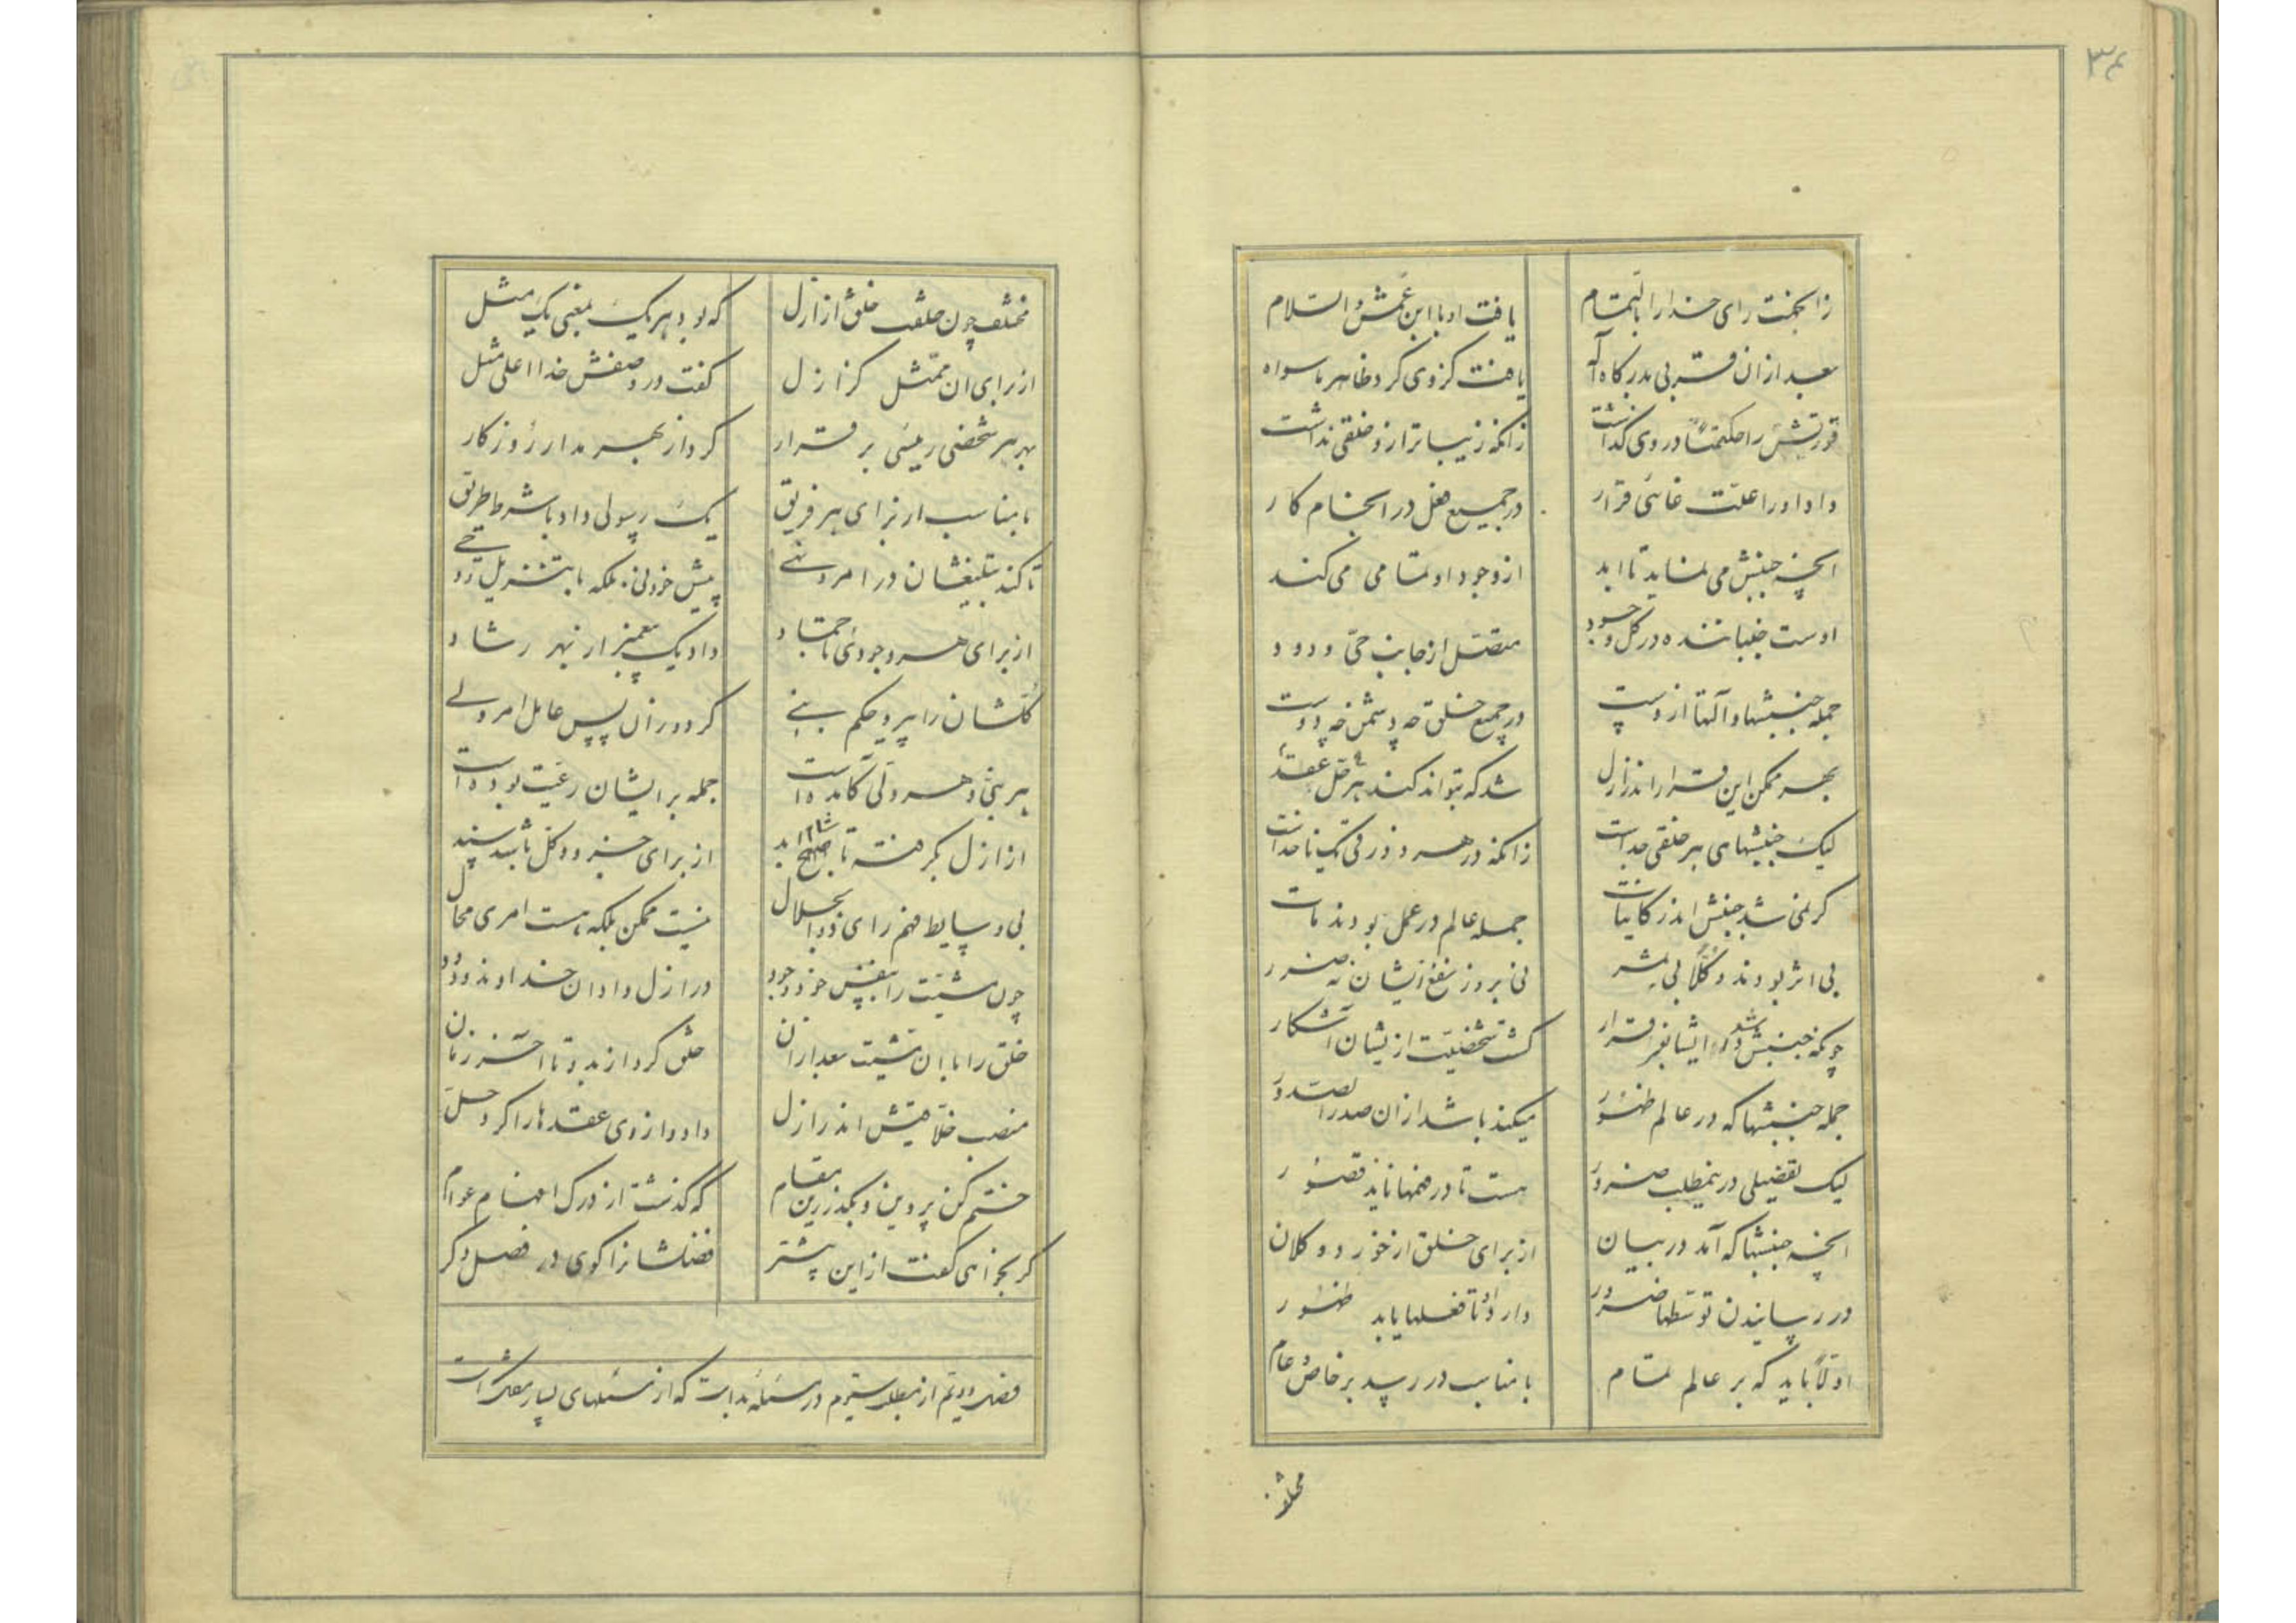 ۳۴
زانجهت رای خدا را بالتمام یافت او با ابن عمش والسلام
بعد ازان قربی بدرگاه اله یافت کزوی کرد ظاهر ماسواه
قدرتش را حکمتاً در وی گذاشت زانکه زیباتر ازو خلقی نداشت
داد او را علت غائی قرار در جمیع فعل در انجام کار
انچه جنبش می نماید تا ابد از وجود او تمامی می کند
اوست جنباننده در کل وجود متصل از جانب حی ودود
جمله جنبشها و آلتها ازوست در جمیع خلق چه دشمن چه دوست
بهر ممکن این قرار اندر ازل شد که تواند کند هر عقد حل
لیک جنبشهای هر خلقی جداست زانکه در هر زورقی یک ناخداست
گر نمی شد جنبش اندر کاینات جمله عالم در عمل بودند مات
بی اثر بودند و کلاً بی ثمر نی بروز نفع زیشان نه ضرر
چونکه جنبش شد در ایشان قرار گشت شخصیت ازیشان آشکار
جمله جنبشها که در عالم ظهور میکند باشد ازان صدرالصدور
لیک تفضیلی درینمطلب ضرور هست تا در فهمها ناید قصور
انچه جنبشها که آمد در بیان از برای خلق از خورد و کلان
در رسانیدن توسطها ضرور دارد او تا فعلها یابد ظهور
اولاً باید که بر عالم تمام با مناسب در رسد بر خاص و عام
مختلف
مختلف چون خلقت خلق از ازل که بود هریک بمعنی یک مثل
از برای ان ممثل کز ازل گفت در وصفش خدا اعلی مثل
بهر هر شخصی رئیسی برقرار کرد از بهر مدار روزکار
با مناسب از برای هر فریق یک رسولی داد با شرط طریق
تا کند تبلیغشان در امر و نهی پیش خود نی بلکه با تنزیل و وحی
از برای هر وجودی تا جماد داد یک پیغمبر از بهر رشاد
کلشان را پیرو حکم نبی کرد و زان پس عامل امر ولی
هر نبی و هر ولی کامده است جمله بر ایشان رعیت بوده است
از ازل بگرفته تا شام ابد از برای جزو و کل باشد سند
بی وسایط فهم رای ذوالجلال نیست ممکن بلکه هست امری محال
چون مشیت را بنفس خود وجود در ازل داد ان خداوند ودود
خلق را با ان مشیت بعد ازان خلق کرد از بدو تا آخر زمان
منصب خلاقیتش اندر ازل داد و از وی عقدها را کرد حل
ختم کن پروین و بگذر زین مقام که گذشت از درک افهام عوام
گر بخواهی گفت از این پیشتر فضلشانرا گوی در فصل دگر
فصل دویم از مطلب سیوم در مسئله بداست که از مسئلهای بسیار مشکل است